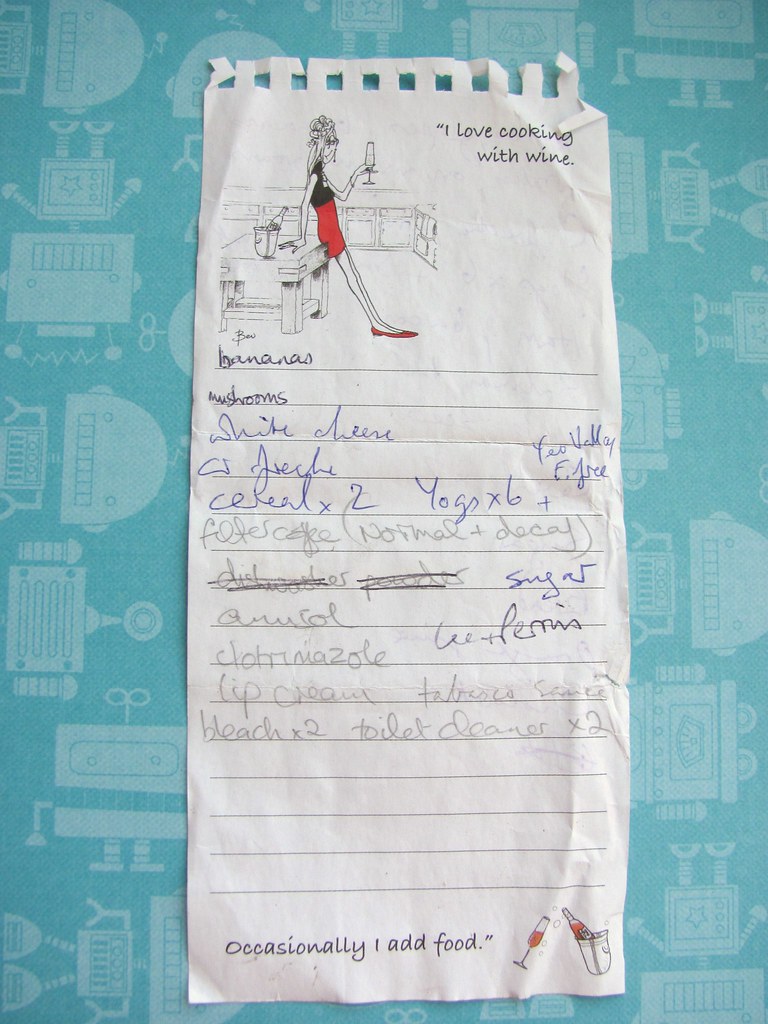 "I love cooking
with wine.
Bev
bananas
mushrooms
white cheese
Yeo Valley
F. free
cr freche
cereal x 2 Yogs x 6 +
filter coffee (Normal + decaf)
dishwasher powder sugar
anusol
Lee + Perrin
clotrimazole
lip cream tabasco sauce
bleach x2 toilet cleaner x2
Occasionally I add food."